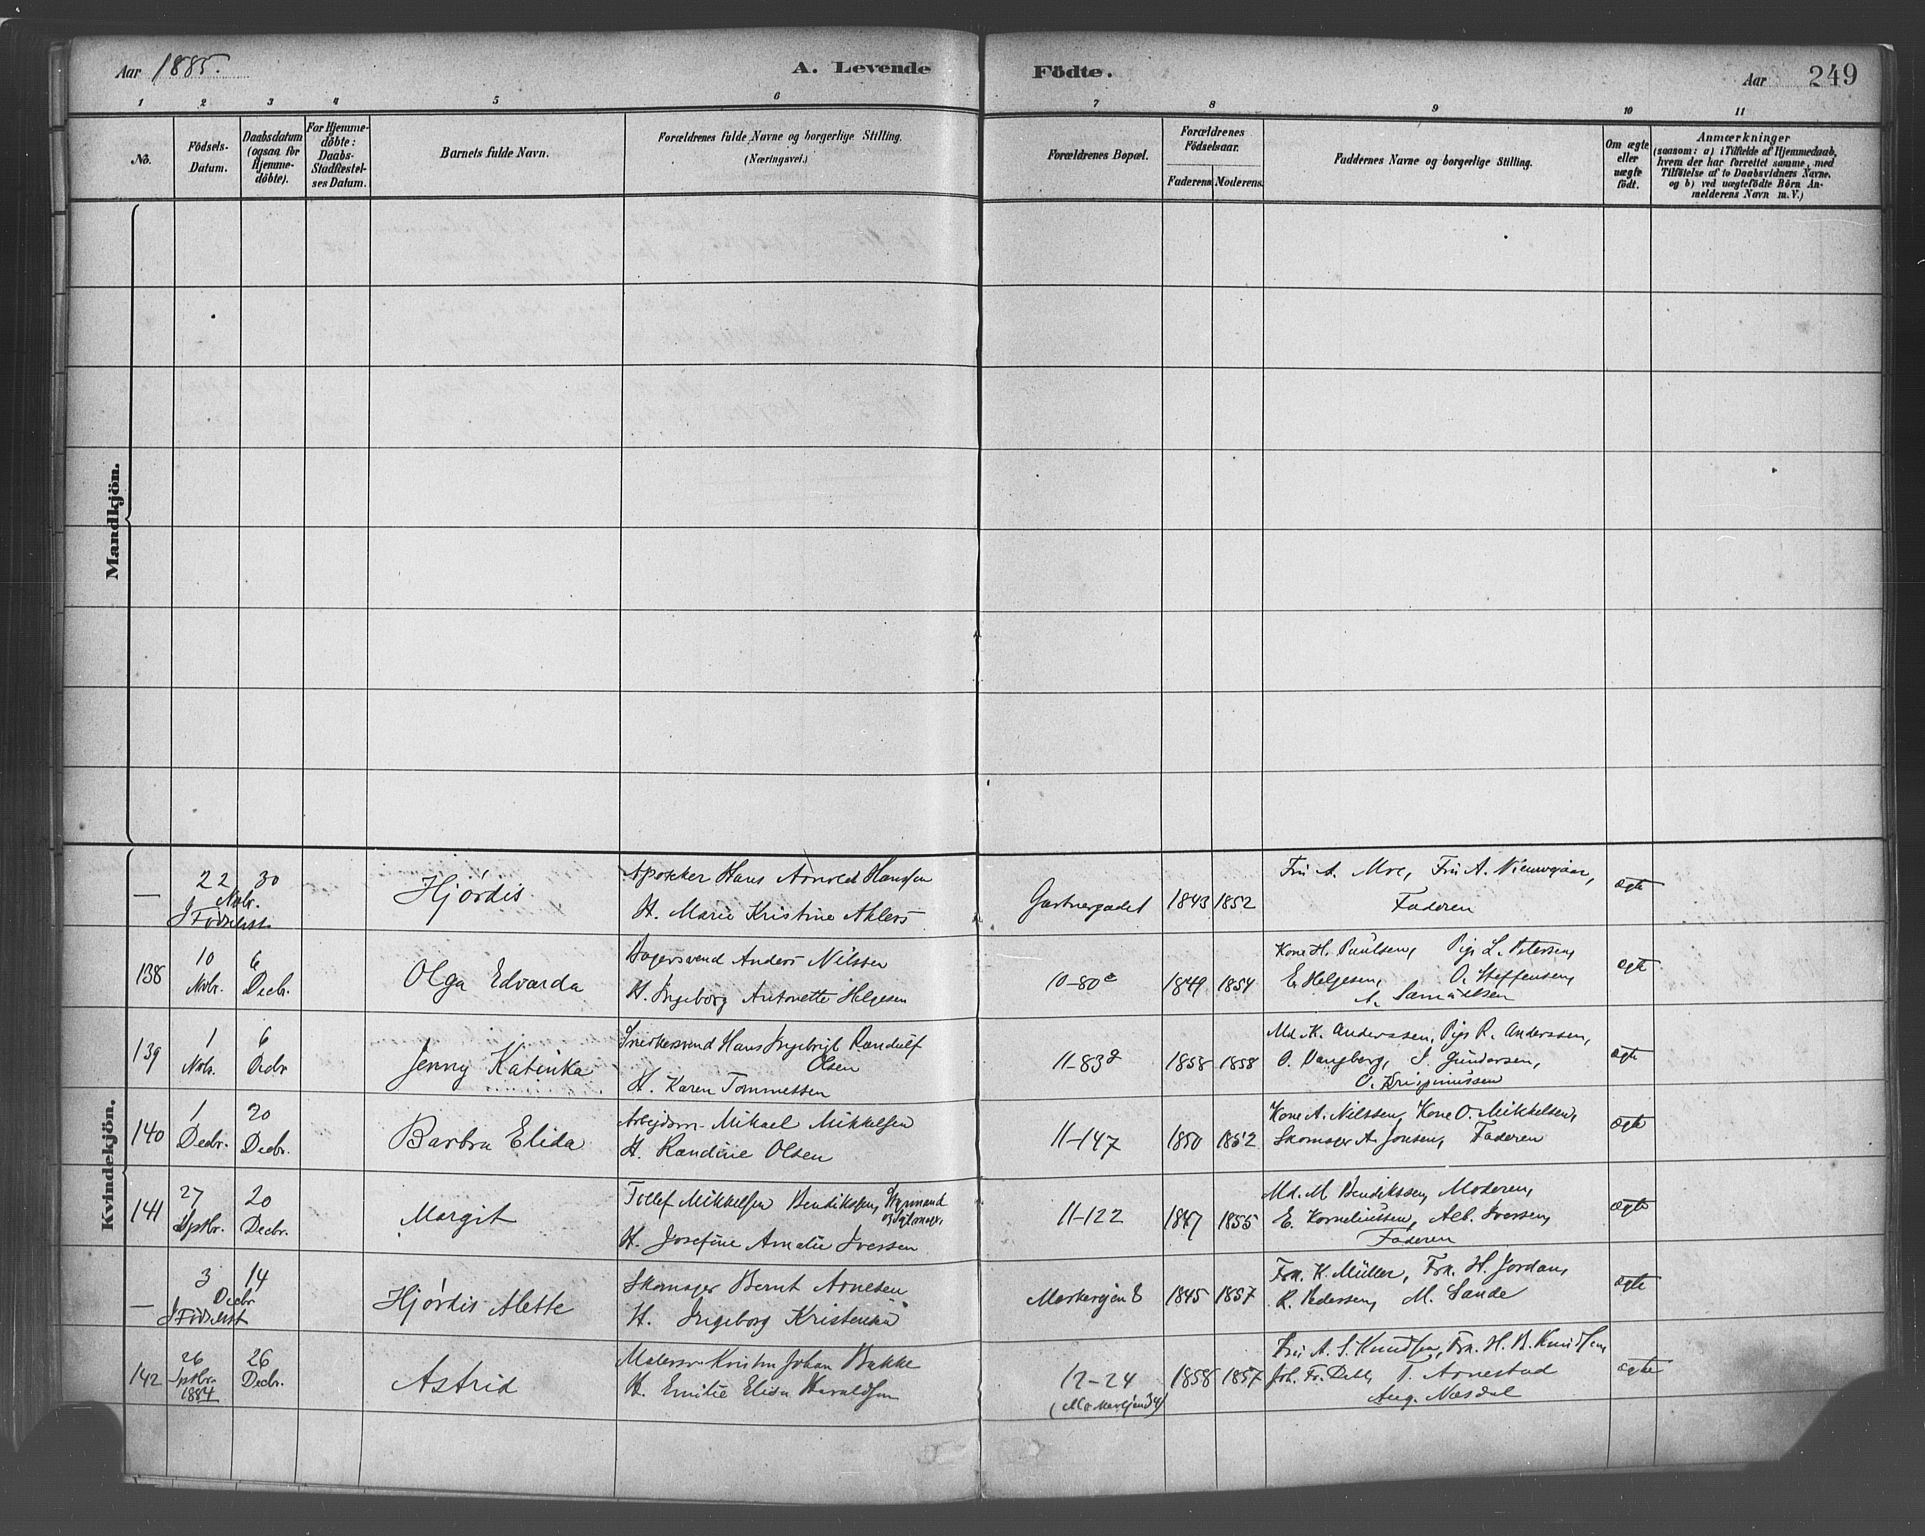 Aar 1885.
A. Levende Födte.
Aar 249
1 2 3 4 5 6 7 8 9 10 11
No.
Födsels-
Datum.
Daabsdatum
(ogsaa for
Hjemme-
döbte).
For Hjemme-
döbte:
Daabs-
Stadfæstel-
ses Datum.
Barnets fulde Navn.
Forældrenes fulde Navne og borgerlige Stilling.
(Næringsvei.)
Forældrenes Bopæl.
Forældrenes
Födselsaar.
Faderens Moderens
Faddernes Navne og borgerlige Stilling.
Om ægte
eller
uægte
födt.
Anmærkninger
(saasom: a) i Tilfælde af Hjemmedaab,
hvem der har forrettet samme, med
Tilföielse af to Daabsvidners Navne.
og b) ved uægtefödte Börn An-
melderens Navn m. V.)
Mandkjön.
Kvindekjön.
— 22 30
Novbr.
J Födselsst
Hjørdis
Apotheker Hans Arnold Hanssen
H. Marie Kristine Ahlers
Gartnergadet 1843 1852
Fru A. Moe, Fru A.
Faderen
ægte
138 10 Novbr. 6 Decbr.
Olga Edvarda
Bagersvend Anders Nilssen
H. Ingeborg Antonette Helgesen
10-80c 1849 1854
Kone H. Paulsen, Pige L. Petersen,
E. Helgesen, O. Steffensen,
A. Samuelsen
ægte
139 1 Novbr. 6 Decbr
Jenny Katinka
Snedkersvend Hans Ingebrigt Randulf
Olsen
H. Karen Tommessen
11-83d 1858 1858
Md. K. Anderssen, Pige R. Anderssen,
O. Vangberg, J. Gundersen,
O. Krispinussen
ægte
140 1 Decbr. 20 Decbr.
Barbra Elida
Arbejdsm. Mikael Mikkelsen
H. Randine Olsen
11-147 1850 1852
Kone A. Nilssen, Kone O. Mikkelsen,
Skomager A. Jonsen, Faderen
ægte
141 27 Sptbr. 20 Decbr.
Margit
Tollef Mikkelsen Bendiksen, Styrmand
og
H. Josefine Amalie Iverssen
11-122 1847 1855
Md. M. Bendikssen, Moderen,
E. Korneliussen, Alb. Iverssen,
Faderen
ægte
— 3 14
Decbr
J Födselsst
Hjørdis Alette
Skomager Bernt Arnesen
H. Ingeborg Kristensen
Markevejen 8 1845 1857
Frk. K. Müller, Frk. H. Jordan,
R. Pedersen, M. Sande
ægte
142 26 Sptbr. 1884 26 Decbr.
Astrid
Malersv. Kristen Johan Bakke
H. Emilie Elisa Haraldsen
12-24 1858 1857
(Markevejen 34)
Fru A. S. Knudsen, Frk. H. B. Knudsen,
Joh. Fr. T. Arnestad
Aug. Næsdal
ægte